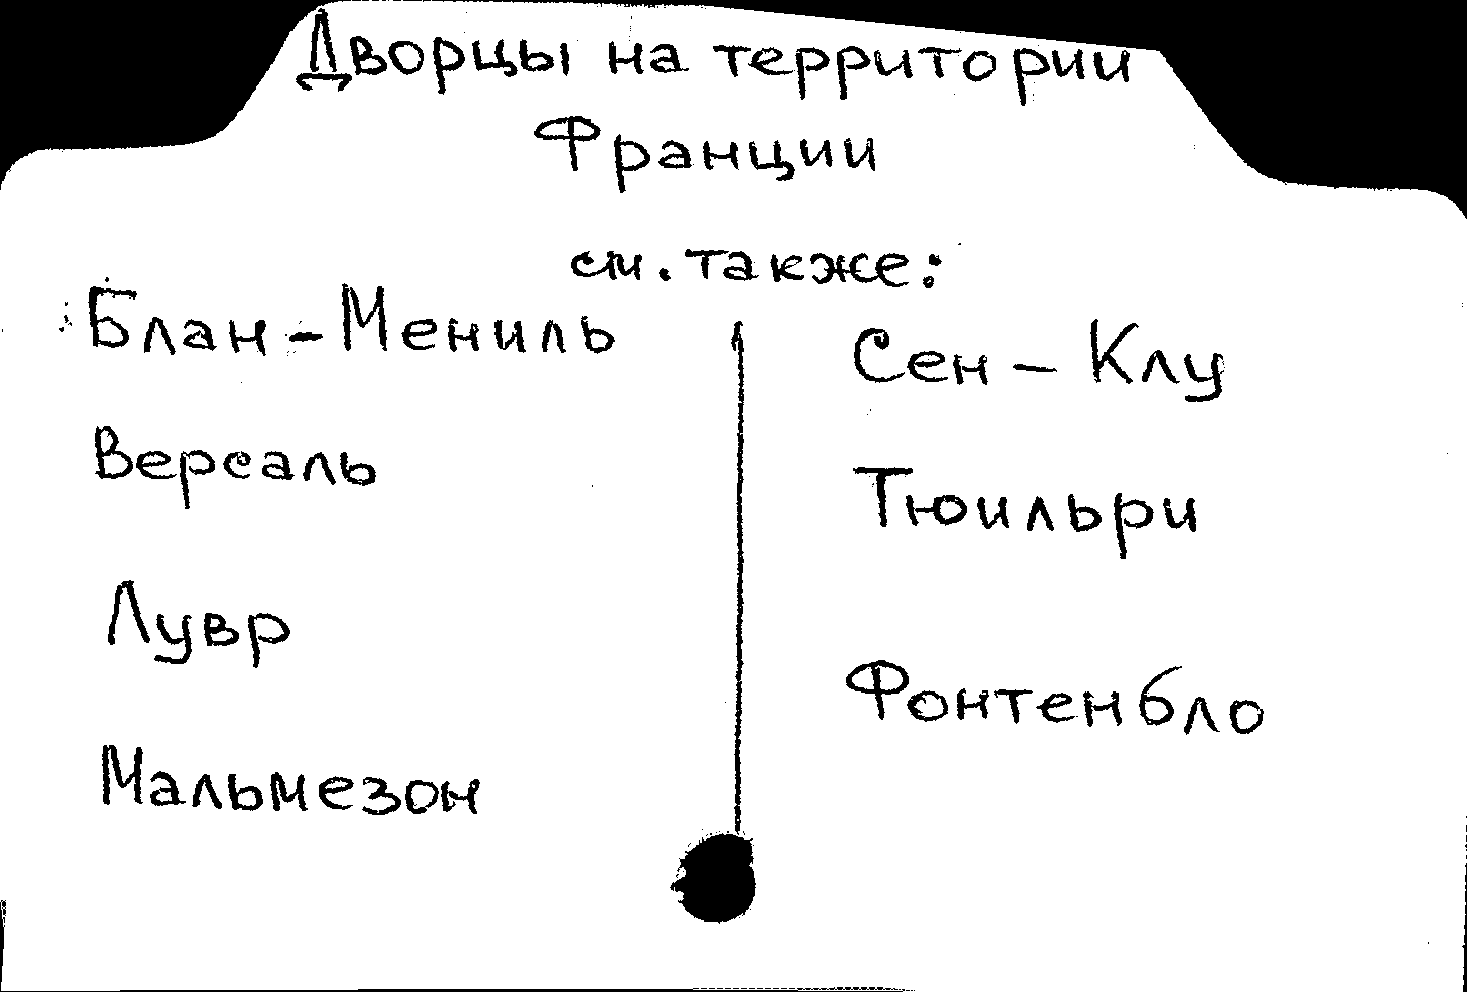 Дворцы на территории
Франции
см. также:
Блан-Мениль
Версаль
Лувр
Мальмезон
Сен-Клу
Тюильри
Фонтенбло